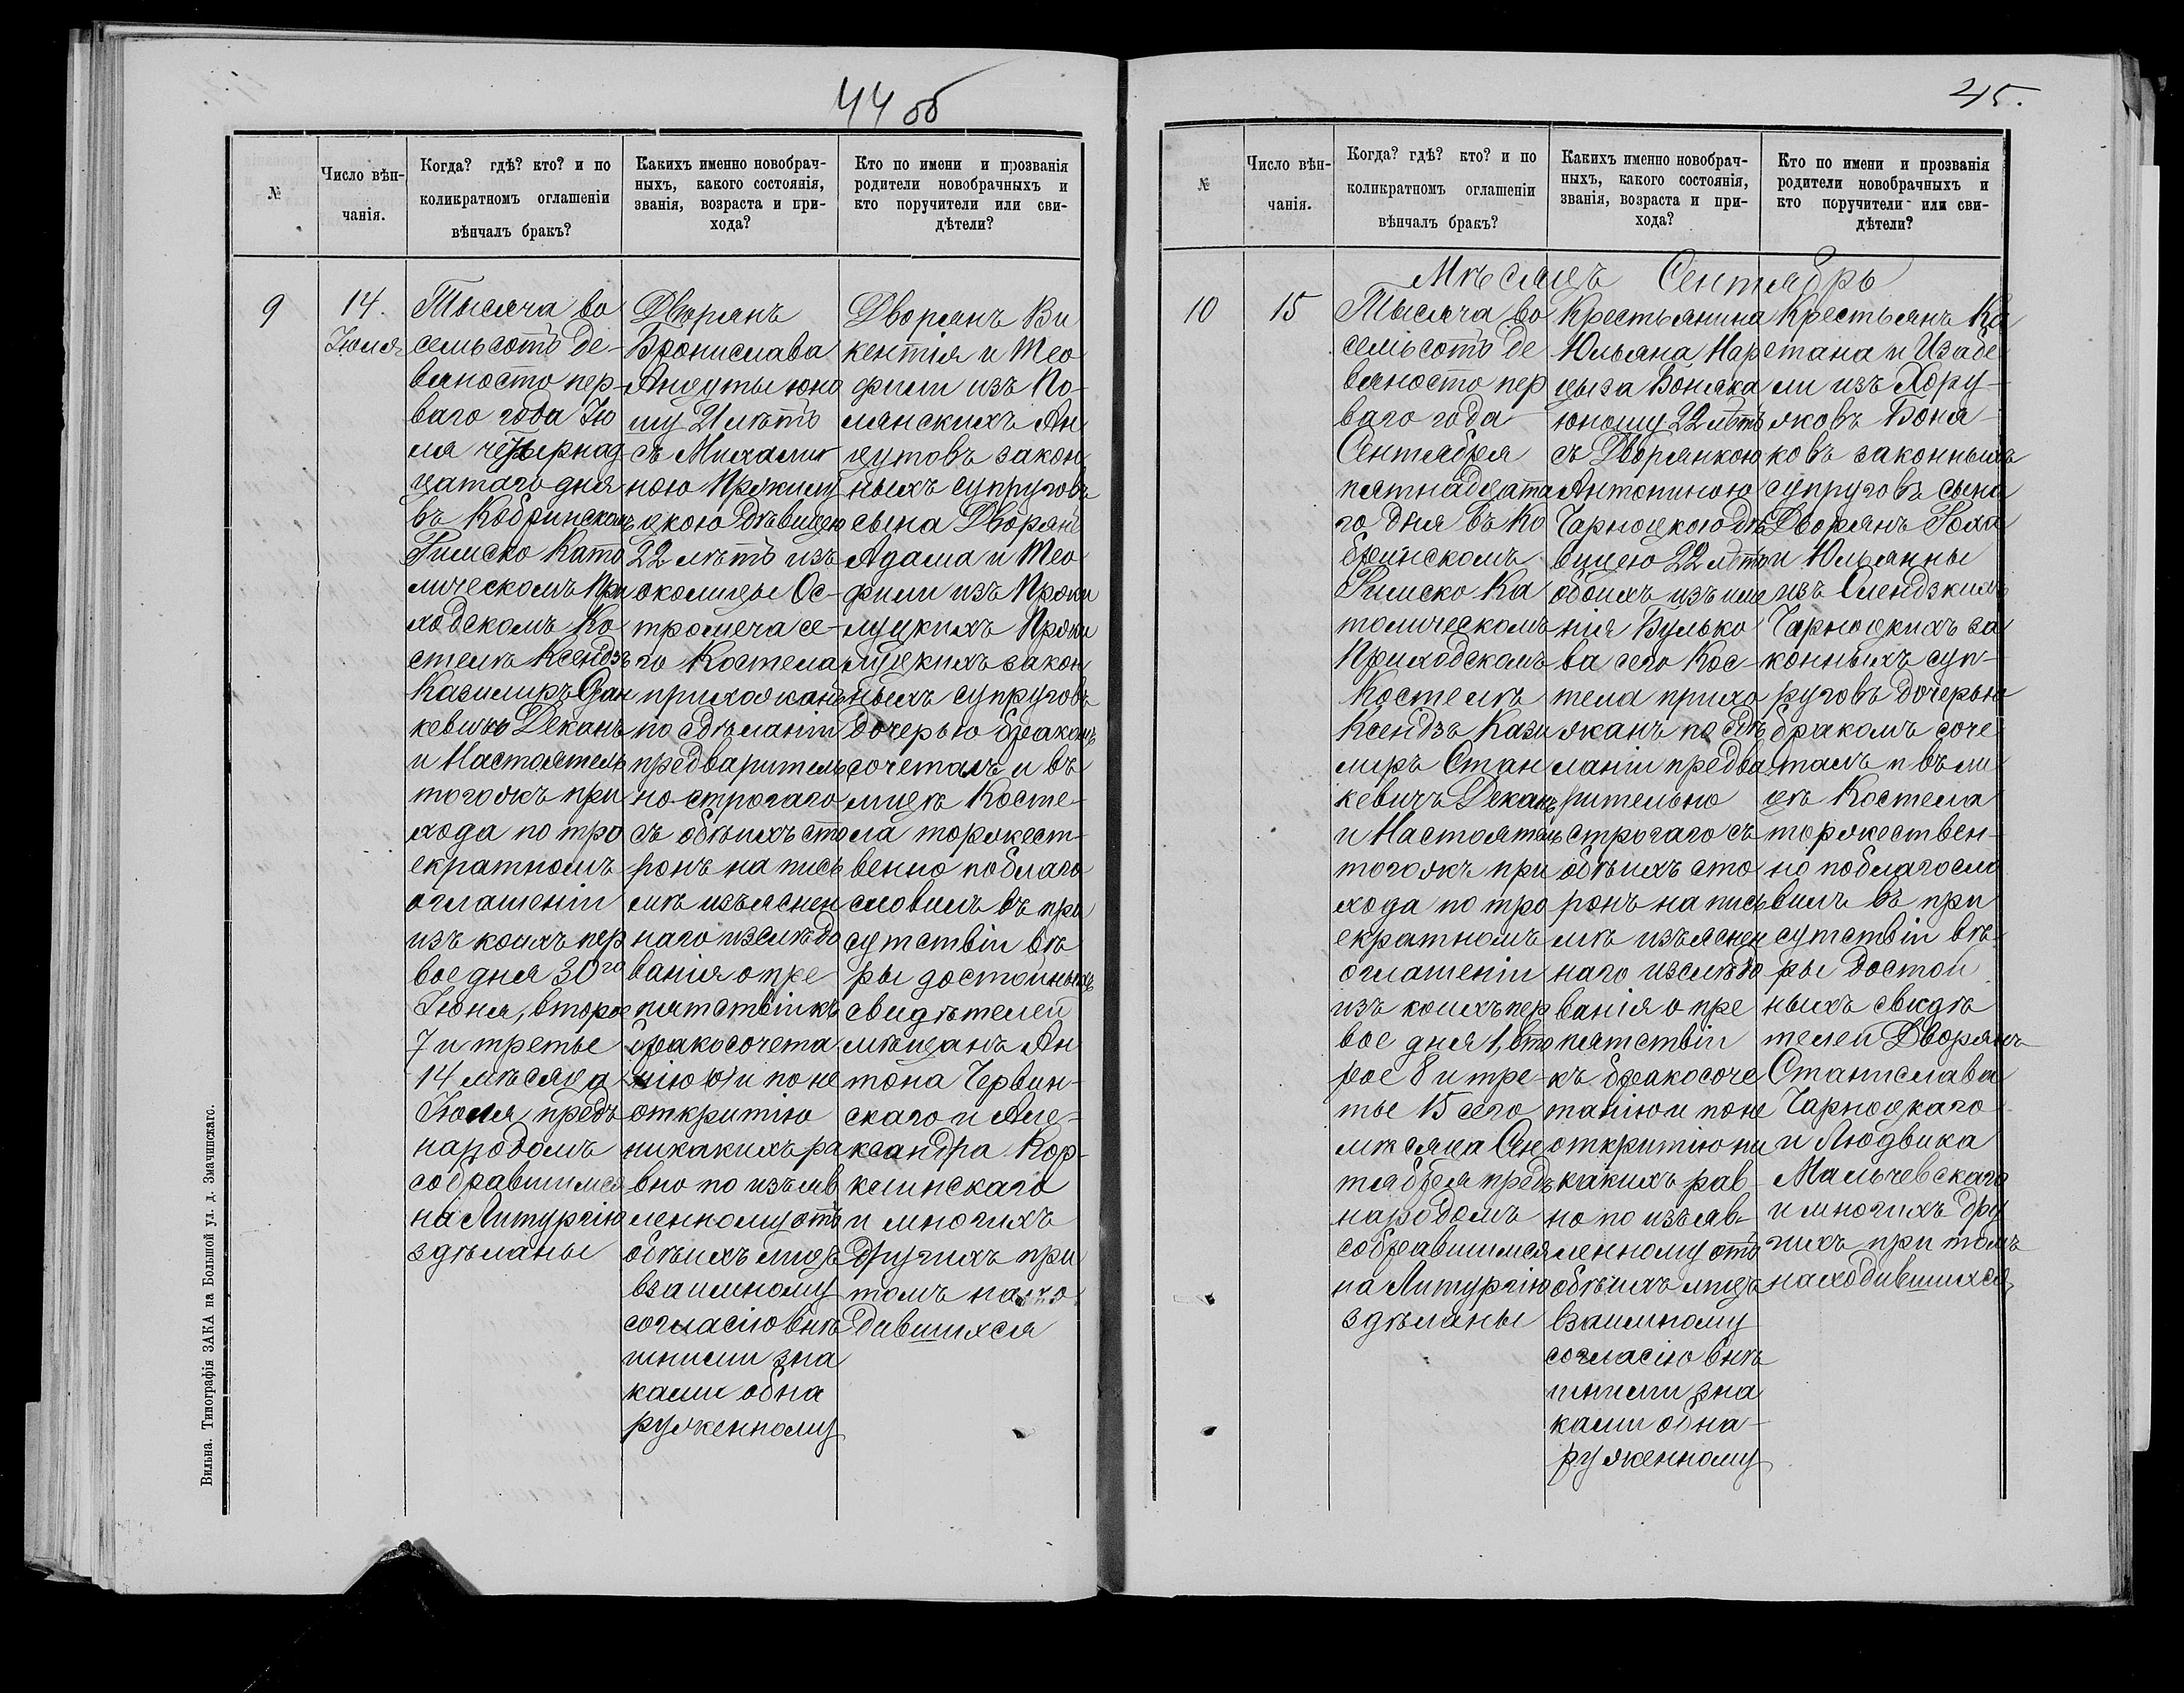 44 об
№
Число вѣн-
чанія.
Когда? гдѣ? кто? и по
коликратномъ оглашеніи
вѣнчалъ бракъ?
Какихъ именно новобрач-
ныхъ, какого состоянія,
званія, возраста и при-
хода?
Кто по имени и прозванія
родители новобрачныхъ и
кто поручители или сви-
дѣтели?
9
14.
Іюля
Тысяча во
семьсотъ де-
вяносто пер-
ваго года Ію
ля четырнад-
цатаго дня
въ Кобринскомъ
Римско Като
лическомъ При
ходскомъ Ко
стелѣ Ксендзъ
Казимиръ Стан
кевичъ Деканъ
и Настоятель
тогожъ при
хода по тро
екратномъ
оглашеніи
изъ коихъ пер
вое дня 30го
Іюня, второе
7 и третье
14 мѣсяца
Іюля предъ
народомъ
собравшимся
на Литургію
здѣланы
Дворянъ
Бронислава
Анцуты юно
шу 21 лѣтъ
съ Михали
ною Прокул
цкою дѣвицею
22 лѣтъ изъ
околицы Ос-
тромеча се-
го Костела
прихожанъ
по сдѣланіи
предваритель
но строгаго
съ обѣихъ сто
ронъ на пись
мѣ изъяснен
наго изслѣдо
ванія о пре
пятствіи къ
бракосочета
нію и по не
открытію
никакихъ ра
вно по изъяв
ленному отъ
обѣихъ лицъ
взаимному
согласію внѣ
шними зна
ками обна
руженному
Дворянъ Ви
кентія и Тео
фили изъ По-
лянскихъ Ан
цутовъ закон
ныхъ супруговъ
сына Дворянъ
Адама и Тео
фили изъ Проку
луцкихъ Проку
луцкихъ закон
ныхъ супруговъ
дочерью бракомъ
сочеталъ и въ
лицѣ Косте-
ла торжест-
венно поблаго
словилъ въ при
сутствіи вѣ
ры достойныхъ
свидѣтелей
мѣщанъ Ан
тона Червин-
скаго и Але-
ксандра Кор-
кеинскаго
и многихъ
другихъ при
томъ нахо
дившихся
Вильна. Типографія ЗАКА на Большой ул. д. Змачинскаго.
45.
№
Число вѣн-
чанія.
Когда? гдѣ? кто? и по
коликратномъ оглашеніи
вѣнчалъ бракъ?
Какихъ именно новобрач-
ныхъ, какого состоянія,
званія, возраста и при-
хода?
Кто по имени и прозванія
родители новобрачныхъ и
кто поручители или сви-
дѣтели?
Мѣсяцъ Сентябрь
10
15
Тысяча во
семьсотъ де
вяносто пер
ваго года
Сентября
пятнадцата
го дня въ Ко
бринскомъ
Римско Ка
толическомъ
Приходскомъ
Костелѣ
Ксендзъ Кази
миръ Стан
кевичъ Деканъ
и Настоятель
тогожъ при
хода по тро
екратномъ
оглашеніи
изъ коихъ пер
вое дня 1, вто
рое 8 и тре-
тье 15 сего
мѣсяца Сен
тября предъ
народомъ
собравшимся
на Литургію
здѣланы
Крестьянина
Юльяна Нар
цыза Боняка
юношу 22 лѣтъ
съ Дворянкою
Антониною
Чарноцкою дѣ
вицею 22 лѣтъ
обоихъ изъ име
нія Булько
ва сего Кос-
тела прихо
жанъ по сдѣ
ланіи предва
рительно
строгаго съ
обѣихъ сто
ронъ на пись
мѣ изъяснен
наго изслѣдо
ванія о пре
пятствіи
къ бракосоче
танію и по не
открытію ни
какихъ рав
но по изъяв-
ленному отъ
обѣихъ лицъ
взаимному
согласію внѣ
шними зна
ками обна-
руженному
Крестьянъ Ка
етана и Изабе
ли изъ Хору-
жовъ Боня-
ковъ законныхъ
супруговъ сына
Дворянъ Роха
и Юльянны
изъ Слендзкихъ
Чарноцкихъ за
конныхъ суп-
руговъ дочерью
бракомъ соче
талъ и въ ли
цѣ Костела
торжествен-
но поблагосло
вилъ въ при
сутствіи вѣ-
ры достой
ныхъ свидѣ
телей Дворянъ
Станислава
Чарноцкаго
и Людвика
Мальчевскаго
и многихъ дру
гихъ при томъ
находившихся